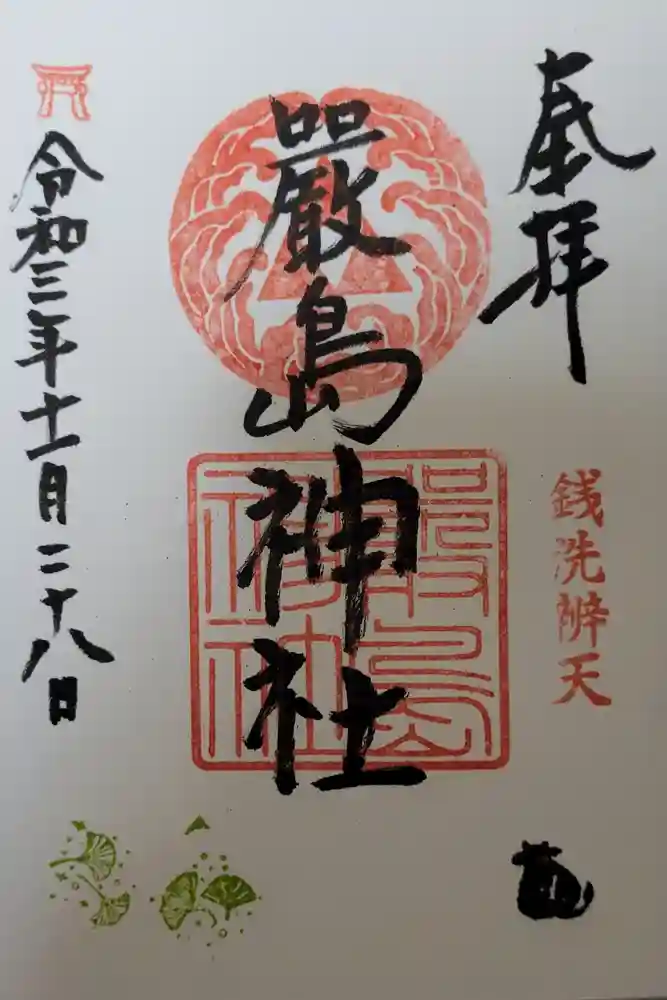 奉拝
銭洗辨天
嚴島神社
嚴島
神社
令和三年十一月二十八日